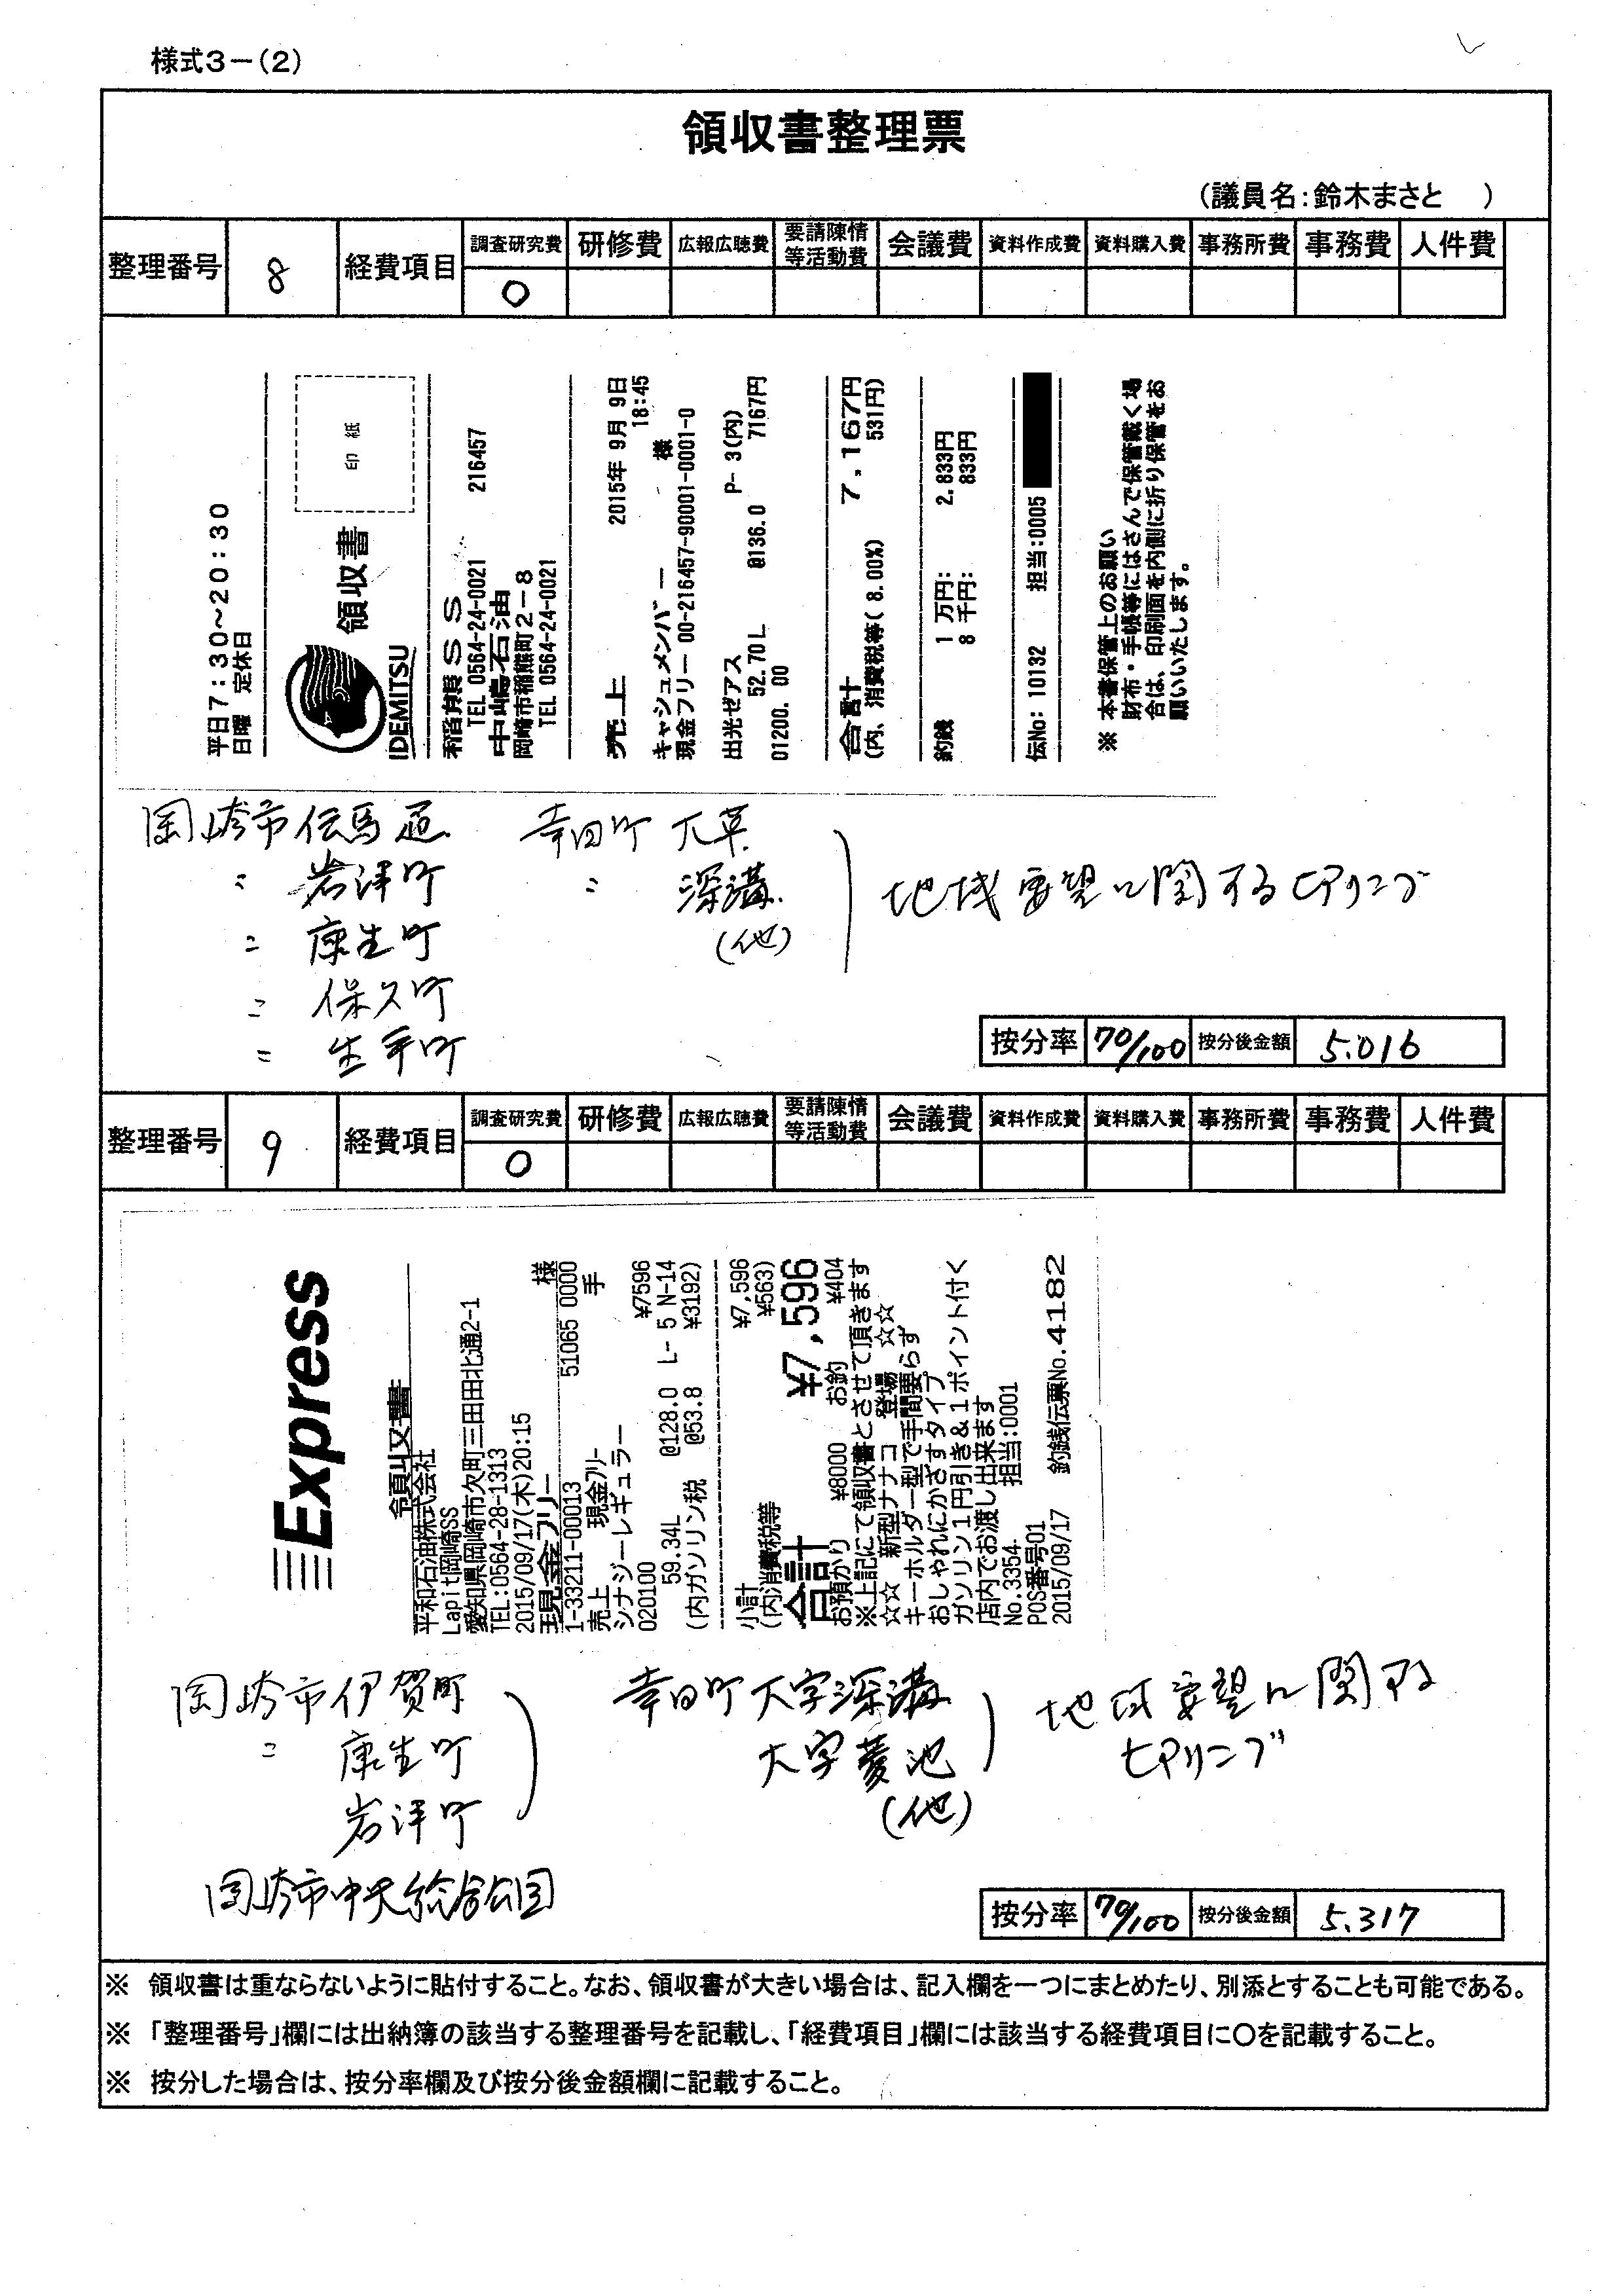 様式3－(2)
領収書整理票
(議員名:鈴木まさと　)
整理番号 8 経費項目 調査研究費 研修費 広報広聴費 要請陳情等活動費 会議費 資料作成費 資料購入費 事務所費 事務費 人件費
○
平日7:30~20:30
日曜 定休日
IDEMITSU
領収書
印 紙
SS 216457
TEL 0564-24-0021
中嶋石油
岡崎市稲熊町2-8
TEL 0564-24-0021
売上 2015年 9月 9日
18:45
キャッシュメンバー 様
現金フリー 00-216457-90001-0001-0
出光ゼアス P- 3(内)
52.70L @136.0 7167円
01200. 00
合計 7,167円
(内、消費税等( 8.00%) 531円)
1万円: 2,833円
釣銭 8千円: 833円
伝No: 10132 担当:0005
※ 本書保管上のお願い
財布・手帳等にはさんで保管戴く場
合は、印刷面を内側に折り保管をお
願いいたします。
岡崎市伝馬通 幸田町 大草
〃 岩津町 〃 深溝
〃 康生町 (他)
〃 保久町
〃 生平町
地域要望に関するヒアリング
按分率 70/100 按分後金額 5.016
整理番号 9 経費項目 調査研究費 研修費 広報広聴費 要請陳情等活動費 会議費 資料作成費 資料購入費 事務所費 事務費 人件費
○
Express
領収書
平和石油株式会社
Lapit岡崎SS
愛知県岡崎市欠町三田田北通2-1
TEL:0564-28-1313
2015/09/17(木)20:15
現金フリー 様
1-33211-00013 51065 0000
売上 現金フリー 手
シナジーレギュラー
020100 ¥7596
59.34L @128.0 L- 5 N-14
(内ガソリン税 @53.8 ¥3192)
小計 ¥7,596
(内消費税等 ¥563)
合計 ¥7,596
お預かり ¥8000 お釣 ¥404
※上記にて領収書とさせて頂きます
☆☆ 新型ナナコ 登場 ☆☆
キーホルダー型で手間要らず
おしゃれにかざすタイプ
ガソリン1円引き&1ポイント付く
店内でお渡し出来ます
No.3354 担当:0001
POS番号01
2015/09/17 釣銭伝票No.4182
岡崎市伊賀町
〃 康生町
岩津町
岡崎市中央総合公園
幸田町大字深溝
大字菱池
(他)
地域要望に関する
ヒアリング
按分率 70/100 按分後金額 5.317
※ 領収書は重ならないように貼付すること。なお、領収書が大きい場合は、記入欄を一つにまとめたり、別添とすることも可能である。
※ 「整理番号」欄には出納簿の該当する整理番号を記載し、「経費項目」欄には該当する経費項目に○を記載すること。
※ 按分した場合は、按分率欄及び按分後金額欄に記載すること。